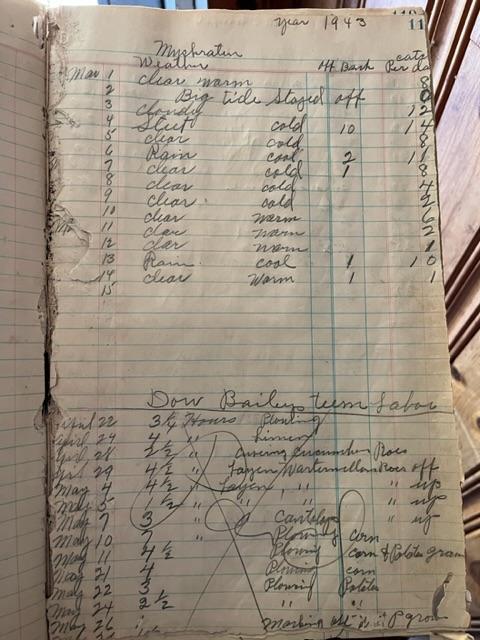 year 1943 11
Myshratur
Weather off Bank cats Per da
Mar 1 clear warm 8
2 Big tide Stayed off 0
3 cloudy 12
4 Sleet cold 10 14
5 clear cold 8
6 Rain cool 2 11
7 clear cold 1 8
8 clear cold 4
9 clear cold 2
10 clear warm 6
11 clar warm 2
12 clar warm 1
13 Rain cool 1 10
14 clear Warm 1 1
15
Dow Baileys teem Labor
April 22 3 1/2 Hours Plowing
April 24 4 "
April 28 2 1/2 " cucumber Roes
April 29 4 1/2 " Layen Wartermellon Roes off
May 4 4 1/2 " Layen " " " up
May 5 1/2 " " " " up
May 7 3 " Cantelop " up
May 10 7 Plowing corn
May 11 4 1/2 Plowing corn & Potates
May 21 4 Plowing corn
May 22 3 Plowing Potates
May 24 2 1/2 " "
May 26 Marking